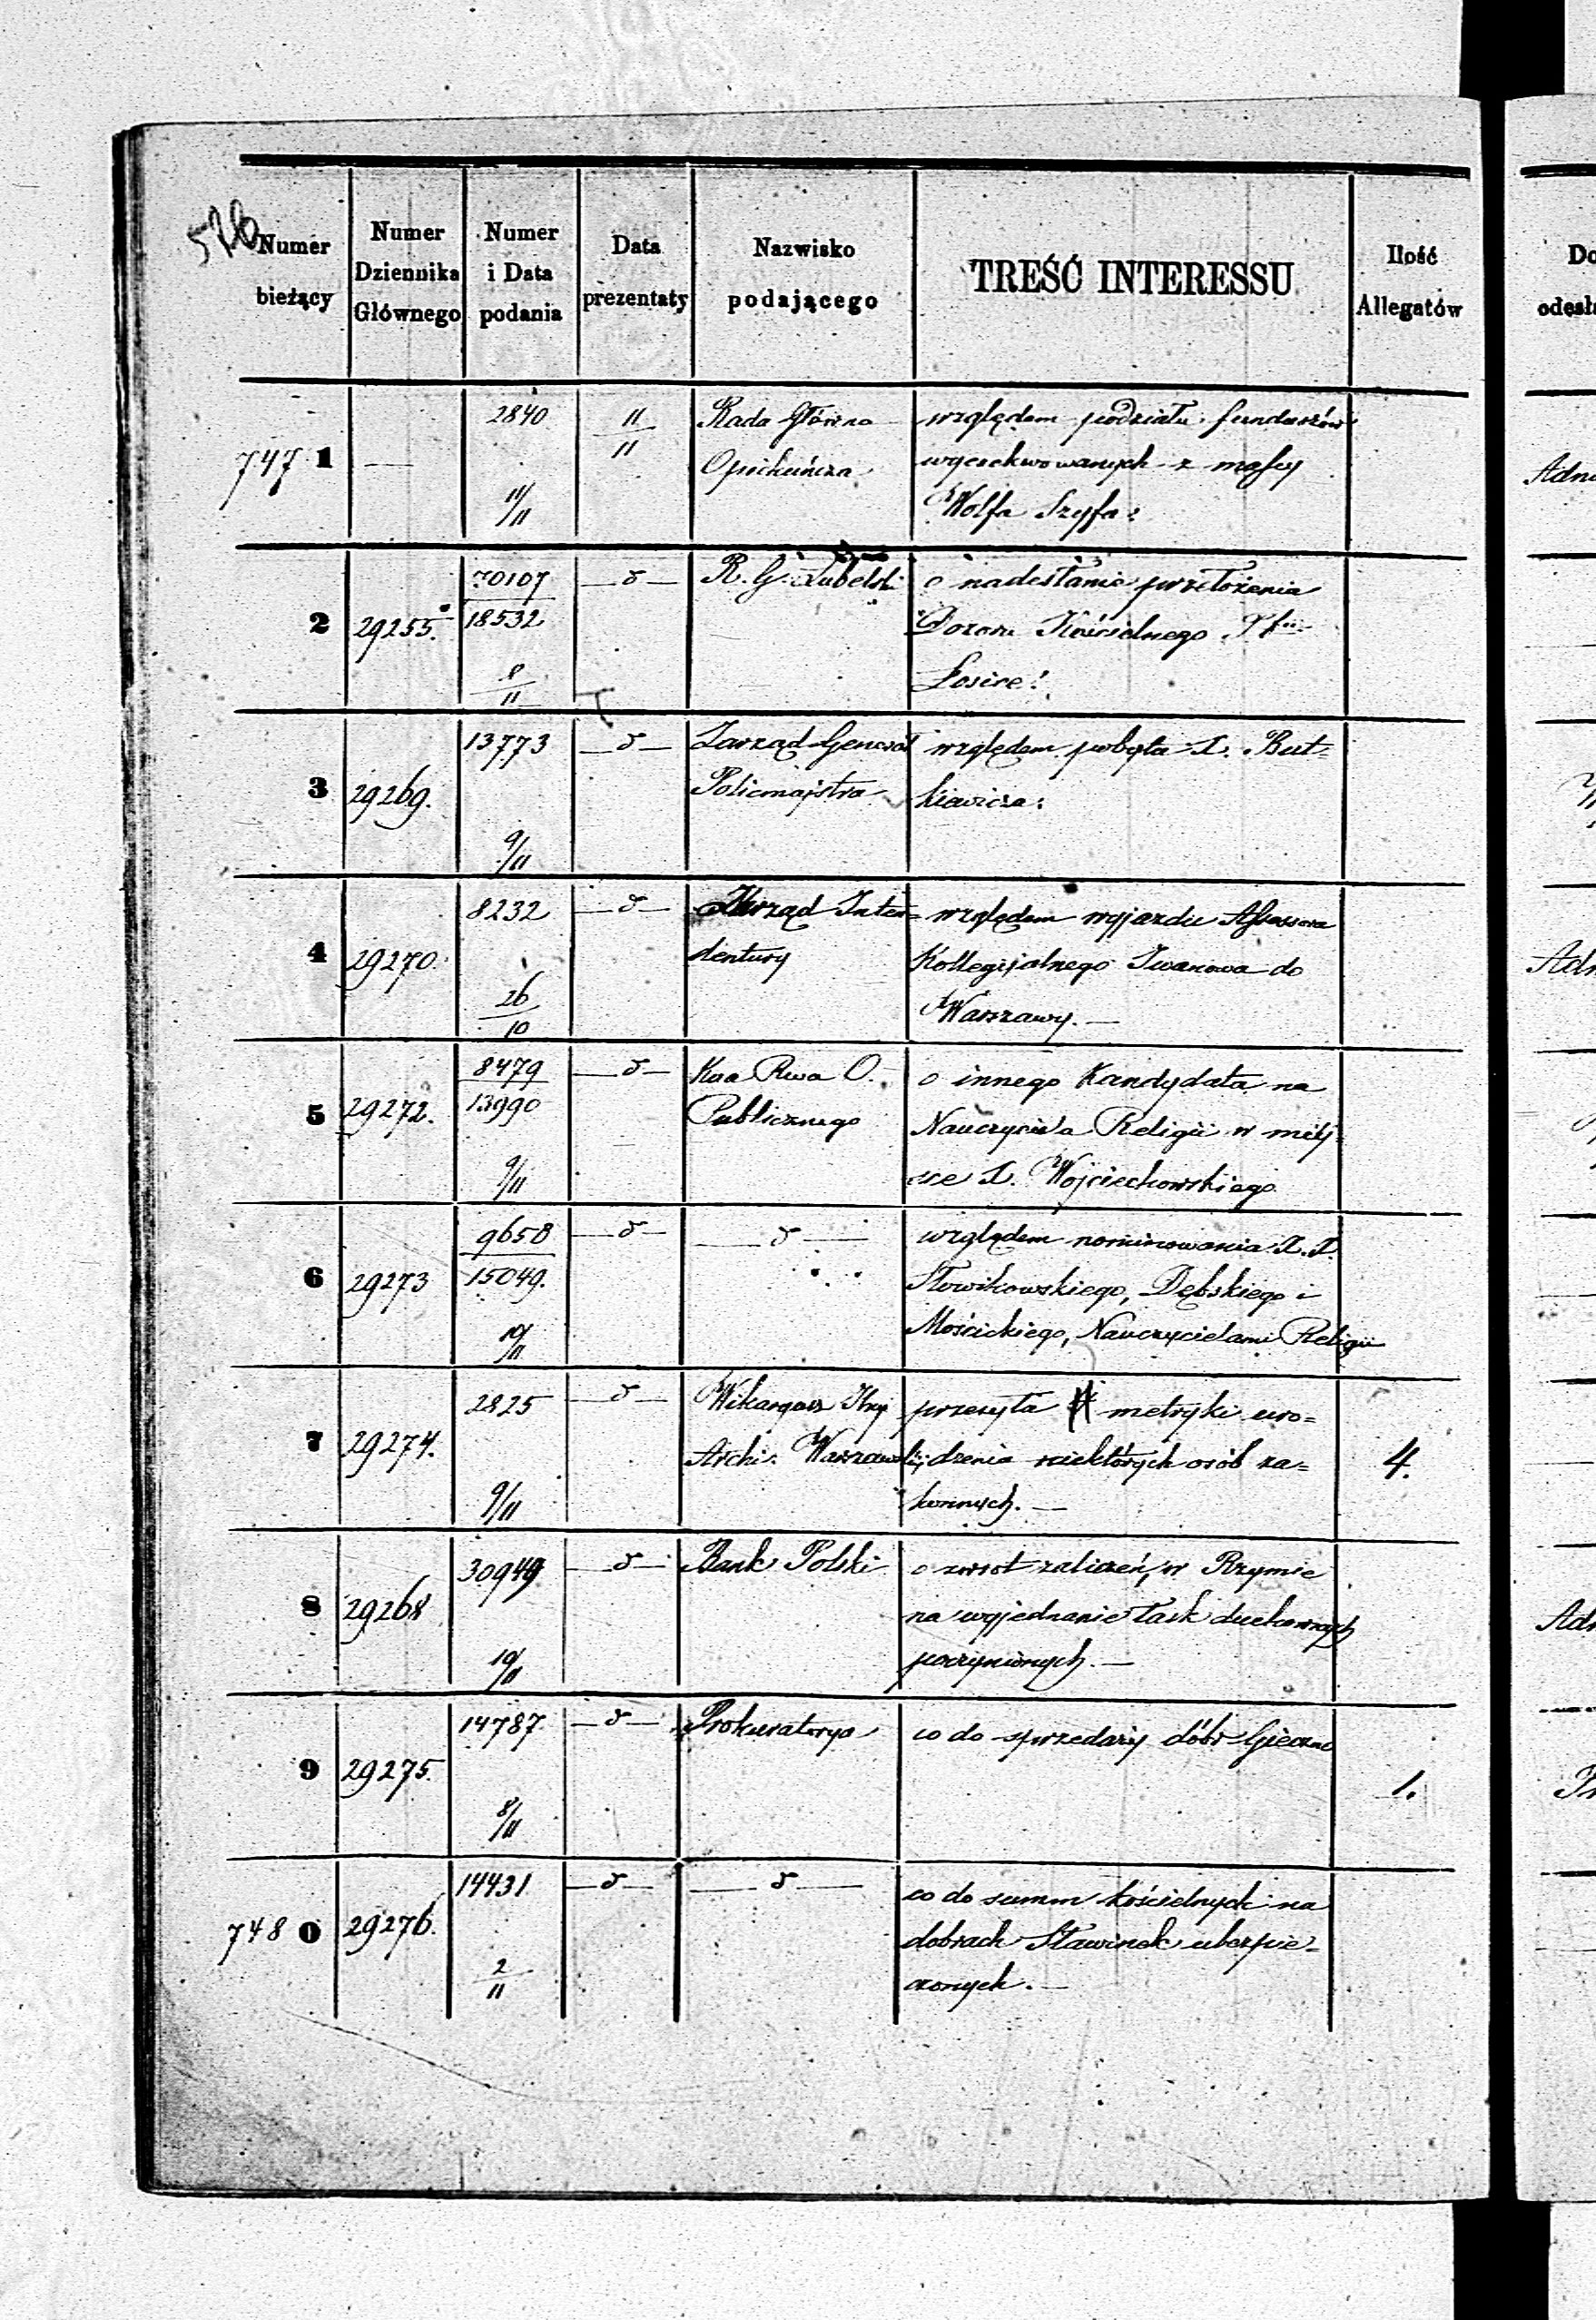 576
Numer bieżący
Numer Dziennika Głównego
Numer i Data podania
Data prezentaty
Nazwisko podającego
TREŚĆ INTERESSU
Ilość Allegatów
Do
odesła
7471 — 2840 11/11 11/11 Rada Główna względem podziału funduszów
Opiekuńcza wyexekwowanych z massy
Wolfa Szyfa:
Adm
2 29255. 70107/18532 8/11 — d — R. G. Lubelski o nadesłanie przełożenia
Dozoru Kościelnego Pfii
Łosice!
3 29269. 13773 9/11 — d — Zarząd Generał względem pobytu X. But=
Policmajstra kiewicza:
4 29270. 8232 26/10 — d — Zarząd Inten= względem wyjazdu Assessora
dentury Kollegijalnego Iwanowa do
Warszawy. —
Adm
5 29272. 8479/13990 9/11 — d — Kua Rwa O. o innego Kandydata na
Publicznego Nauczyciela Religii w miej=
sce X. Wojciechowskiego
6 29273 9658/15049. 10/11 — d — — d — względem nominowania X.X.
Słowikowskiego, Dębskiego i
Mościckiego, Nauczycielami Religii
7 29274. 2825 9/11 — d — Wikaryusz przesyła metryki uro=
Archi. Warszawskiej dzenia niektórych osób za=
konnych. —
4.
8 29268 30949 10/11 — d — Bank Polski o zwrot zaliczeń, w Rzymie
na wyjednanie łask duchownych
poczynionych. —
Adm
9 29275. 14787 8/11 — d — Prokuratorya co do sprzedaży dóbr Gieczno
1.
7480 29276. 14431 2/11 — d — — d — co do summ kościelnych na
dobrach Sławinek ubezpie=
czonych. —